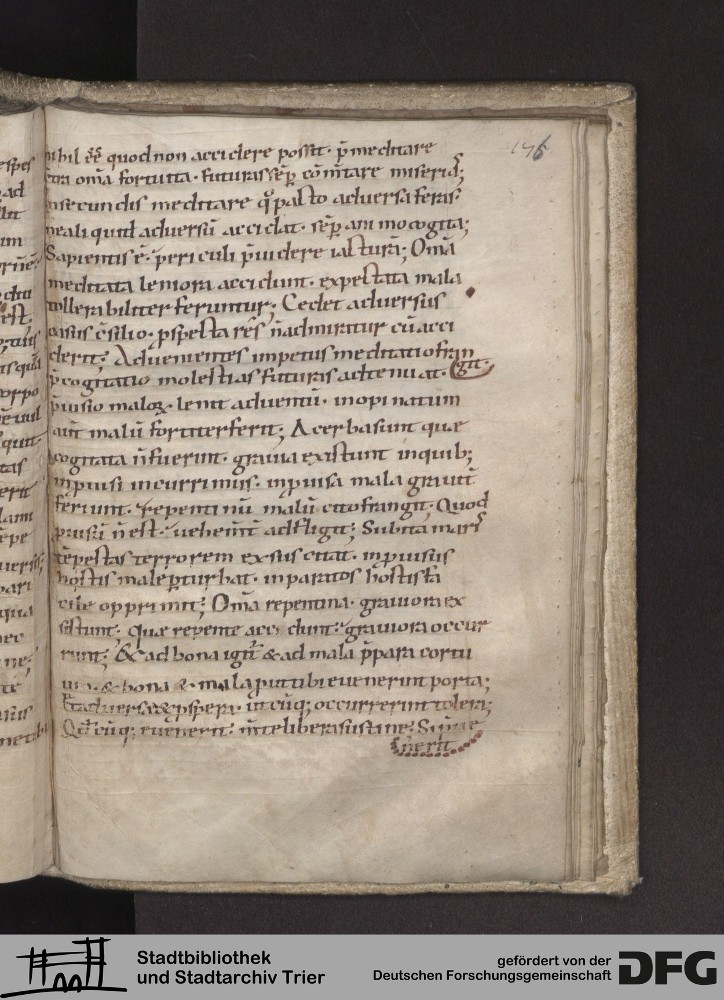 176
nihil ee᷃ quod non accidere possit· p̄meditare
cūcta om̄a fortuita· futuras sēp cōmitare miserias;
in secundis meditare q°pacto adversa feras·
ne aliquid adversū accidat· sēp animo cogita;
Sapientis ē· periculi p̄uidere iacturā; Om̄a
meditata leniora accidunt· expectata mala
tollerabiliter feruntur; Cedet adversus
casus c̄silio· pspecta res n̄ admiratur cū acci
derit; Advenientes impetus meditatio fran
git·
p̄cogitatio molestias futuras adtenuat·
p̄uisio maloꝝ· lenit adventū· inopinatum
aut̄ malū fortiter ferit; Acerba sunt quae
cogitata n̄ fuerint· gravia existunt in quib;
inpuisi incurrimus· inpuisa mala gravit̄
feriunt· repentinū malū cito frangit· Quod
p̄uisū n̄ est· vehem̄t adfligit; Subita maris
tēpestas terrorem exsuscitat· inp̄uisus
hostis male pturbat· inparatos hostis fa
cile opprimit; Om̄a repentina· graviora ex
istunt· quae repente accidunt· graviora occur
runt; & ad bona igit̄ & ad mala p̄para cor tu
um· & bona & mala put tibi evenerint porta;
adversa & pspera· ut cūq; occurrerint tolera;
Qd̄ cūq; evenerit· m̄te libera sustine; Si
nerit
Stadtbibliothek
und Stadtarchiv Trier
gefördert von der
Deutschen Forschungsgemeinschaft
DFG